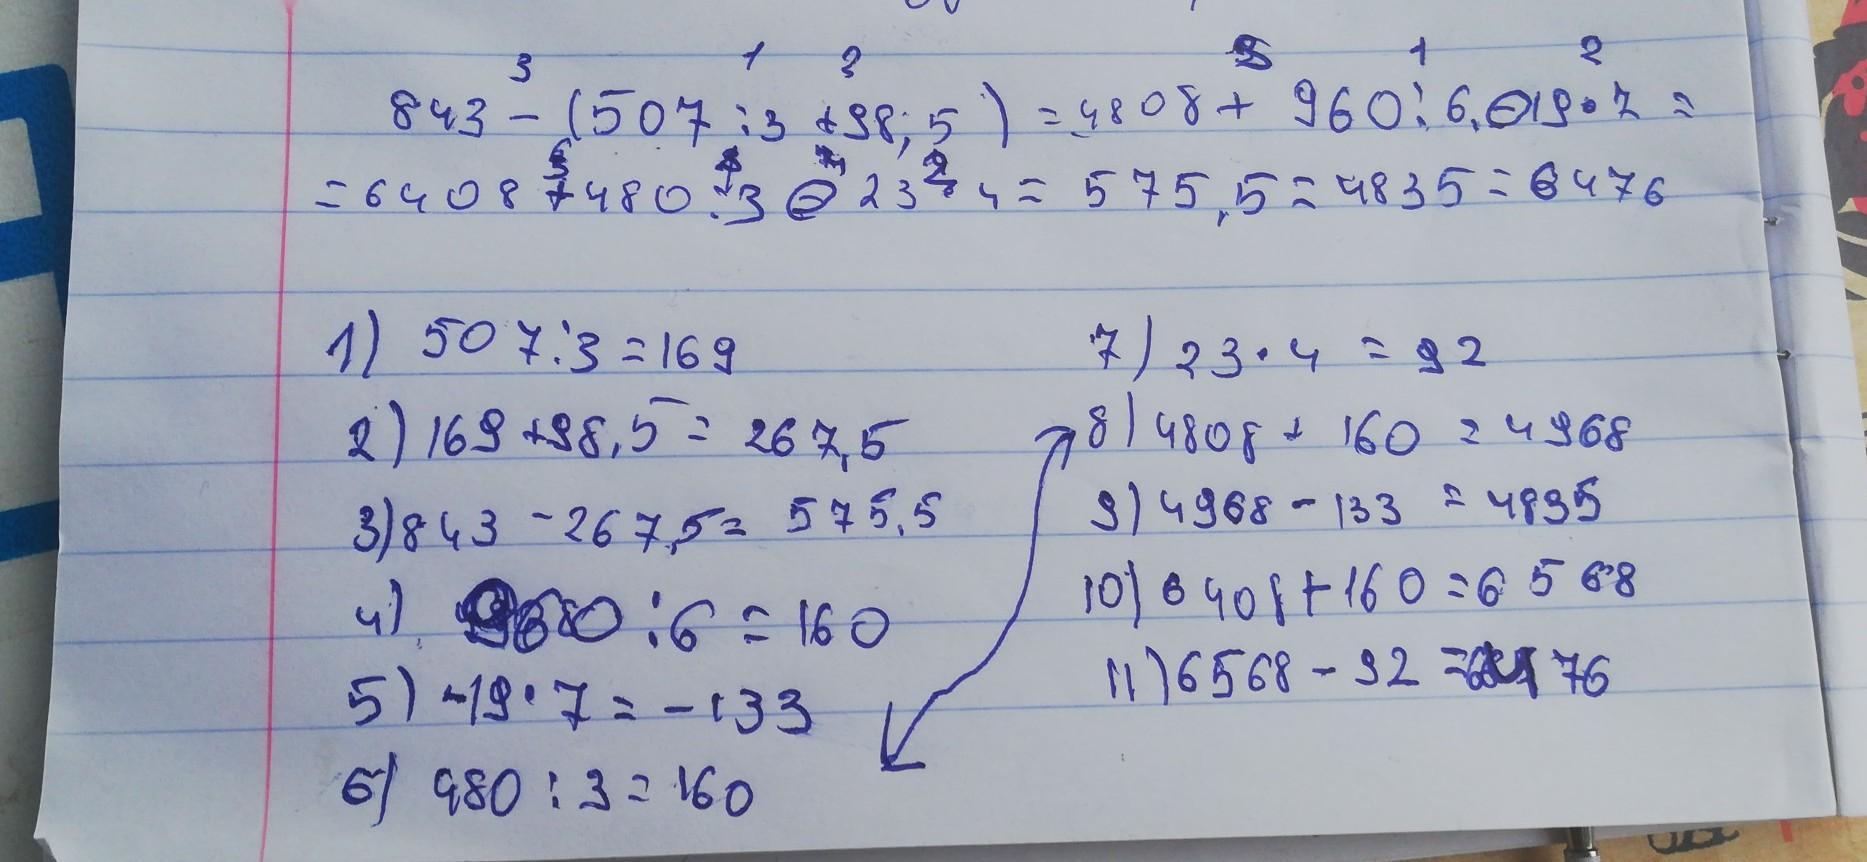 3 1 2 5 1 2
843 - (507 : 3 + 98,5) = 4808 + 960 : 6 - 19 · 7 =
= 6408 + 480 : 3 - 23 · 4 = 575,5 = 4835 = 6476
1) 507 : 3 = 169
2) 169 + 98,5 = 267,5
3) 843 - 267,5 = 575,5
4) 960 : 6 = 160
5) -19 · 7 = -133
6) 480 : 3 = 160
7) 23 · 4 = 92
8) 4808 + 160 = 4968
9) 4968 - 133 = 4835
10) 6408 + 160 = 6568
11) 6568 - 92 = 6476